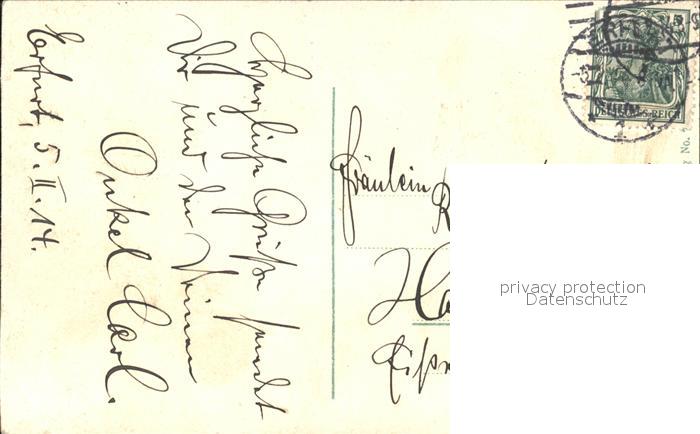 Erfurt, 5. II. 14.
Herzliche Grüße sendet
Dir und den Deinen
Onkel Carl.
Fräulein
Ha
DEUTSCHES REICH
No.
privacy protection
Datenschutz